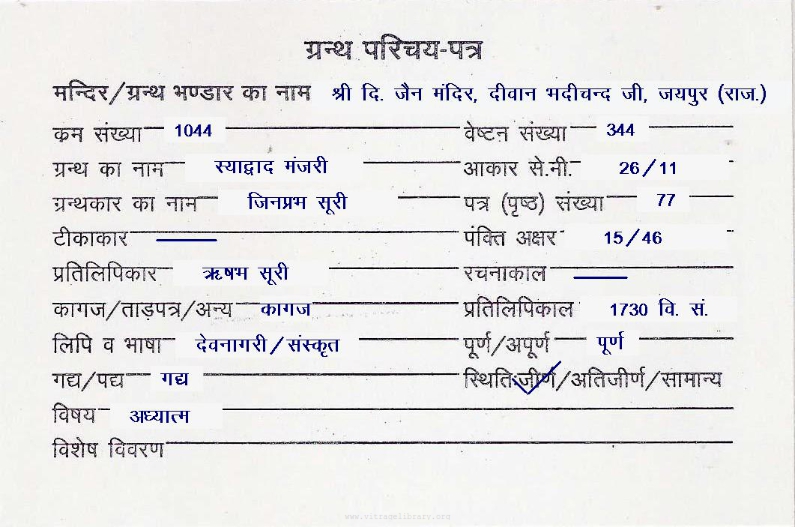 ग्रन्थ परिचय-पत्र
मन्दिर/ग्रन्थ भण्डार का नाम श्री दि. जैन मंदिर, दीवान भदीचन्द जी, जयपुर (राज.)
कम संख्या 1044 वेष्टन संख्या 344
ग्रन्थ का नाम स्याद्वाद मंजरी आकार से.मी. 26/11
ग्रन्थकार का नाम जिनप्रभ सूरी पत्र (पृष्ठ) संख्या 77
टीकाकार — पंक्ति अक्षर 15/46
प्रतिलिपिकार ऋषभ सूरी रचनाकाल —
कागज/ताड़पत्र/अन्य कागज प्रतिलिपिकाल 1730 वि. सं.
लिपि व भाषा देवनागरी/संस्कृत पूर्ण/अपूर्ण पूर्ण
गद्य/पद्य गद्य स्थिति:जीर्ण/अतिजीर्ण/सामान्य
विषय अध्यात्म
विशेष विवरण
www.vitragelibrary.org